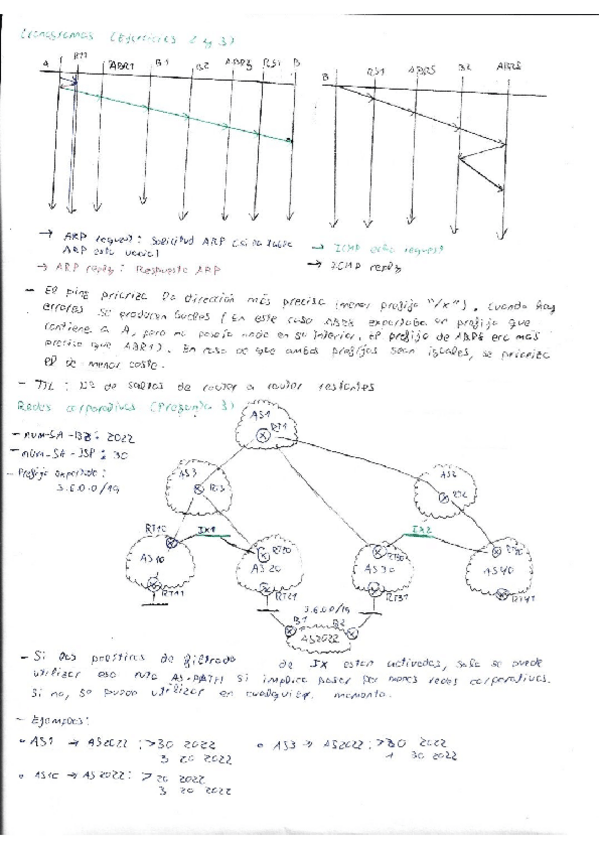 Cronogramas (Ejercicios 2 y 3)
A RT1 ABR1 B1 B2 ABR3 RS1 B
B RS1 ABR5 B2 ABR2
→ ARP request: Solicitud ARP (si la tabla
ARP está vacía)
→ ARP reply: Respuesta ARP
→ ICMP echo request
→ ICMP reply
- El ping prioriza la dirección más precisa (menor prefijo "/x"). Cuando hay
errores se producen bucles (En este caso exportaba un prefijo que
contiene a A, pero no poseía nada en su interior. El prefijo de era más
preciso que ABR1). En caso de que ambos prefijos sean iguales, se prioriza
el de menor coste.
- TTL: Nº de saltos de router a router restantes
Redes corporativas (Pregunta 3)
- num-SA-B2: 2022
- num-SA-ISP: 30
- Prefijo exportado:
3.6.0.0/19
AS1
RT1
AS3
RT3
AS2
RT2
RT10
IX1
RT20
RT30
IX2
RT40
AS10
AS20
AS30
AS40
RT11
RT21
RT31
RT41
3.6.0.0/19
B1 B2
AS2022
- Si las políticas de filtrado de IX están activadas, solo se puede
utilizar esa ruta AS-PATH si implica pasar por menos redes corporativas.
Si no, se puede utilizar en cualquier momento.
- Ejemplos:
• AS1 → AS2022: > 30 2022
3 20 2022
• AS3 → AS2022: > 30 2022
1 30 2022
• AS10 → AS2022: > 20 2022
3 20 2022